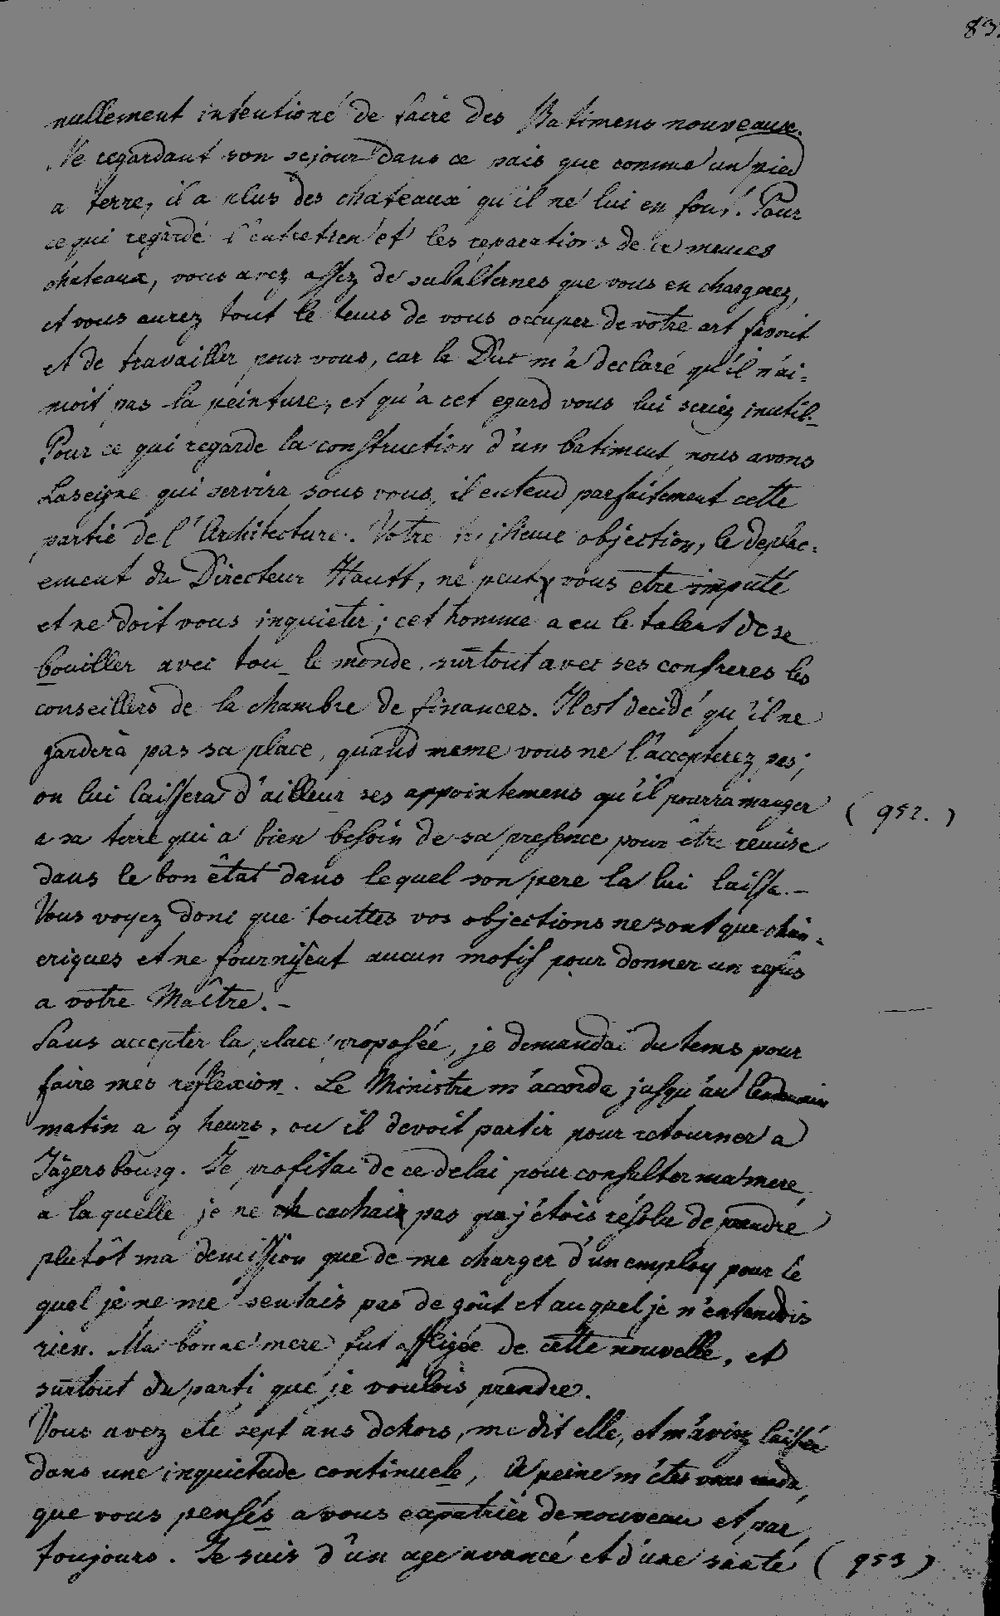 83
nullement intentioné de faire des Batimens nouveaux.
Ne regardant son sejour dans ce pais que comme un pied
a terre, il a plus des chateaux qu'il ne lui en faut. Pour
ce qui regarde l'entretien et les reparations de ce memes
chateaux, vous avez assez de subalternes que vous en chargerez,
et vous aurez tout le tems de vous occuper de votre art favorit
et de travailler pour vous, car le Duc m'a declaré qu'il n'ai-
moit pas la peinture, et qu'a cet egard vous lui seriez inutil.-
Pour ce qui regarde la construction d'un batiment nous avons
Laseigne qui servira sous vous, il entend parfaitement cette
partie de l'Architecture. Votre troisieme objection, le deplac-
ement du Directeur Hautt, ne peut vous etre imputé
et ne doit vous inquieter; cet homme a eu le talent de se
bouiller avec tou le monde, surtout avec ses confreres les
conseillers de la chambre de finances. Il est decidé qu'il ne
gardera pas sa place, quand meme vous ne l'accepterez pas;
on lui laissera d'ailleur ses appointemens qu'il pourra manger
a sa terre qui a bien besoin de sa presence pour être remise
dans le bon êtat dans lequel son pere la lui laissa.-
(952.)
Vous voyez donc que touttes vos objections ne sont que chim-
eriques et ne fournissent aucun motif pour donner un refus
a votre Maître.-
Sans accepter la place proposée, je demandai du tems pour
faire mes réflexion. Le Ministre m'accorda jusqu'au lendemain
matin a 9 heurs, ou il devoit partir pour retourner a
Jägersbourg. Je profitai de ce delai pour consulter ma mere,
a la quelle je ne cachais pas que j'étois résolu de prendre
plutôt ma demission que de me charger d'un employ pour le
quel je ne me sentais pas de goût et au quel je n'entendois
rien. Ma bonne mere fut affligée de cette nouvelle, et
surtout du parti que je voulois prendre.
Vous avez eté sept ans dehors, me dit elle, et m'aviez laissée
dans une inquietude continuele, A peine m'étes vous
que vous pensés a vous expatrier de nouveau et par
toujours. Je suis d'un age avancé et d'une santé
(953)